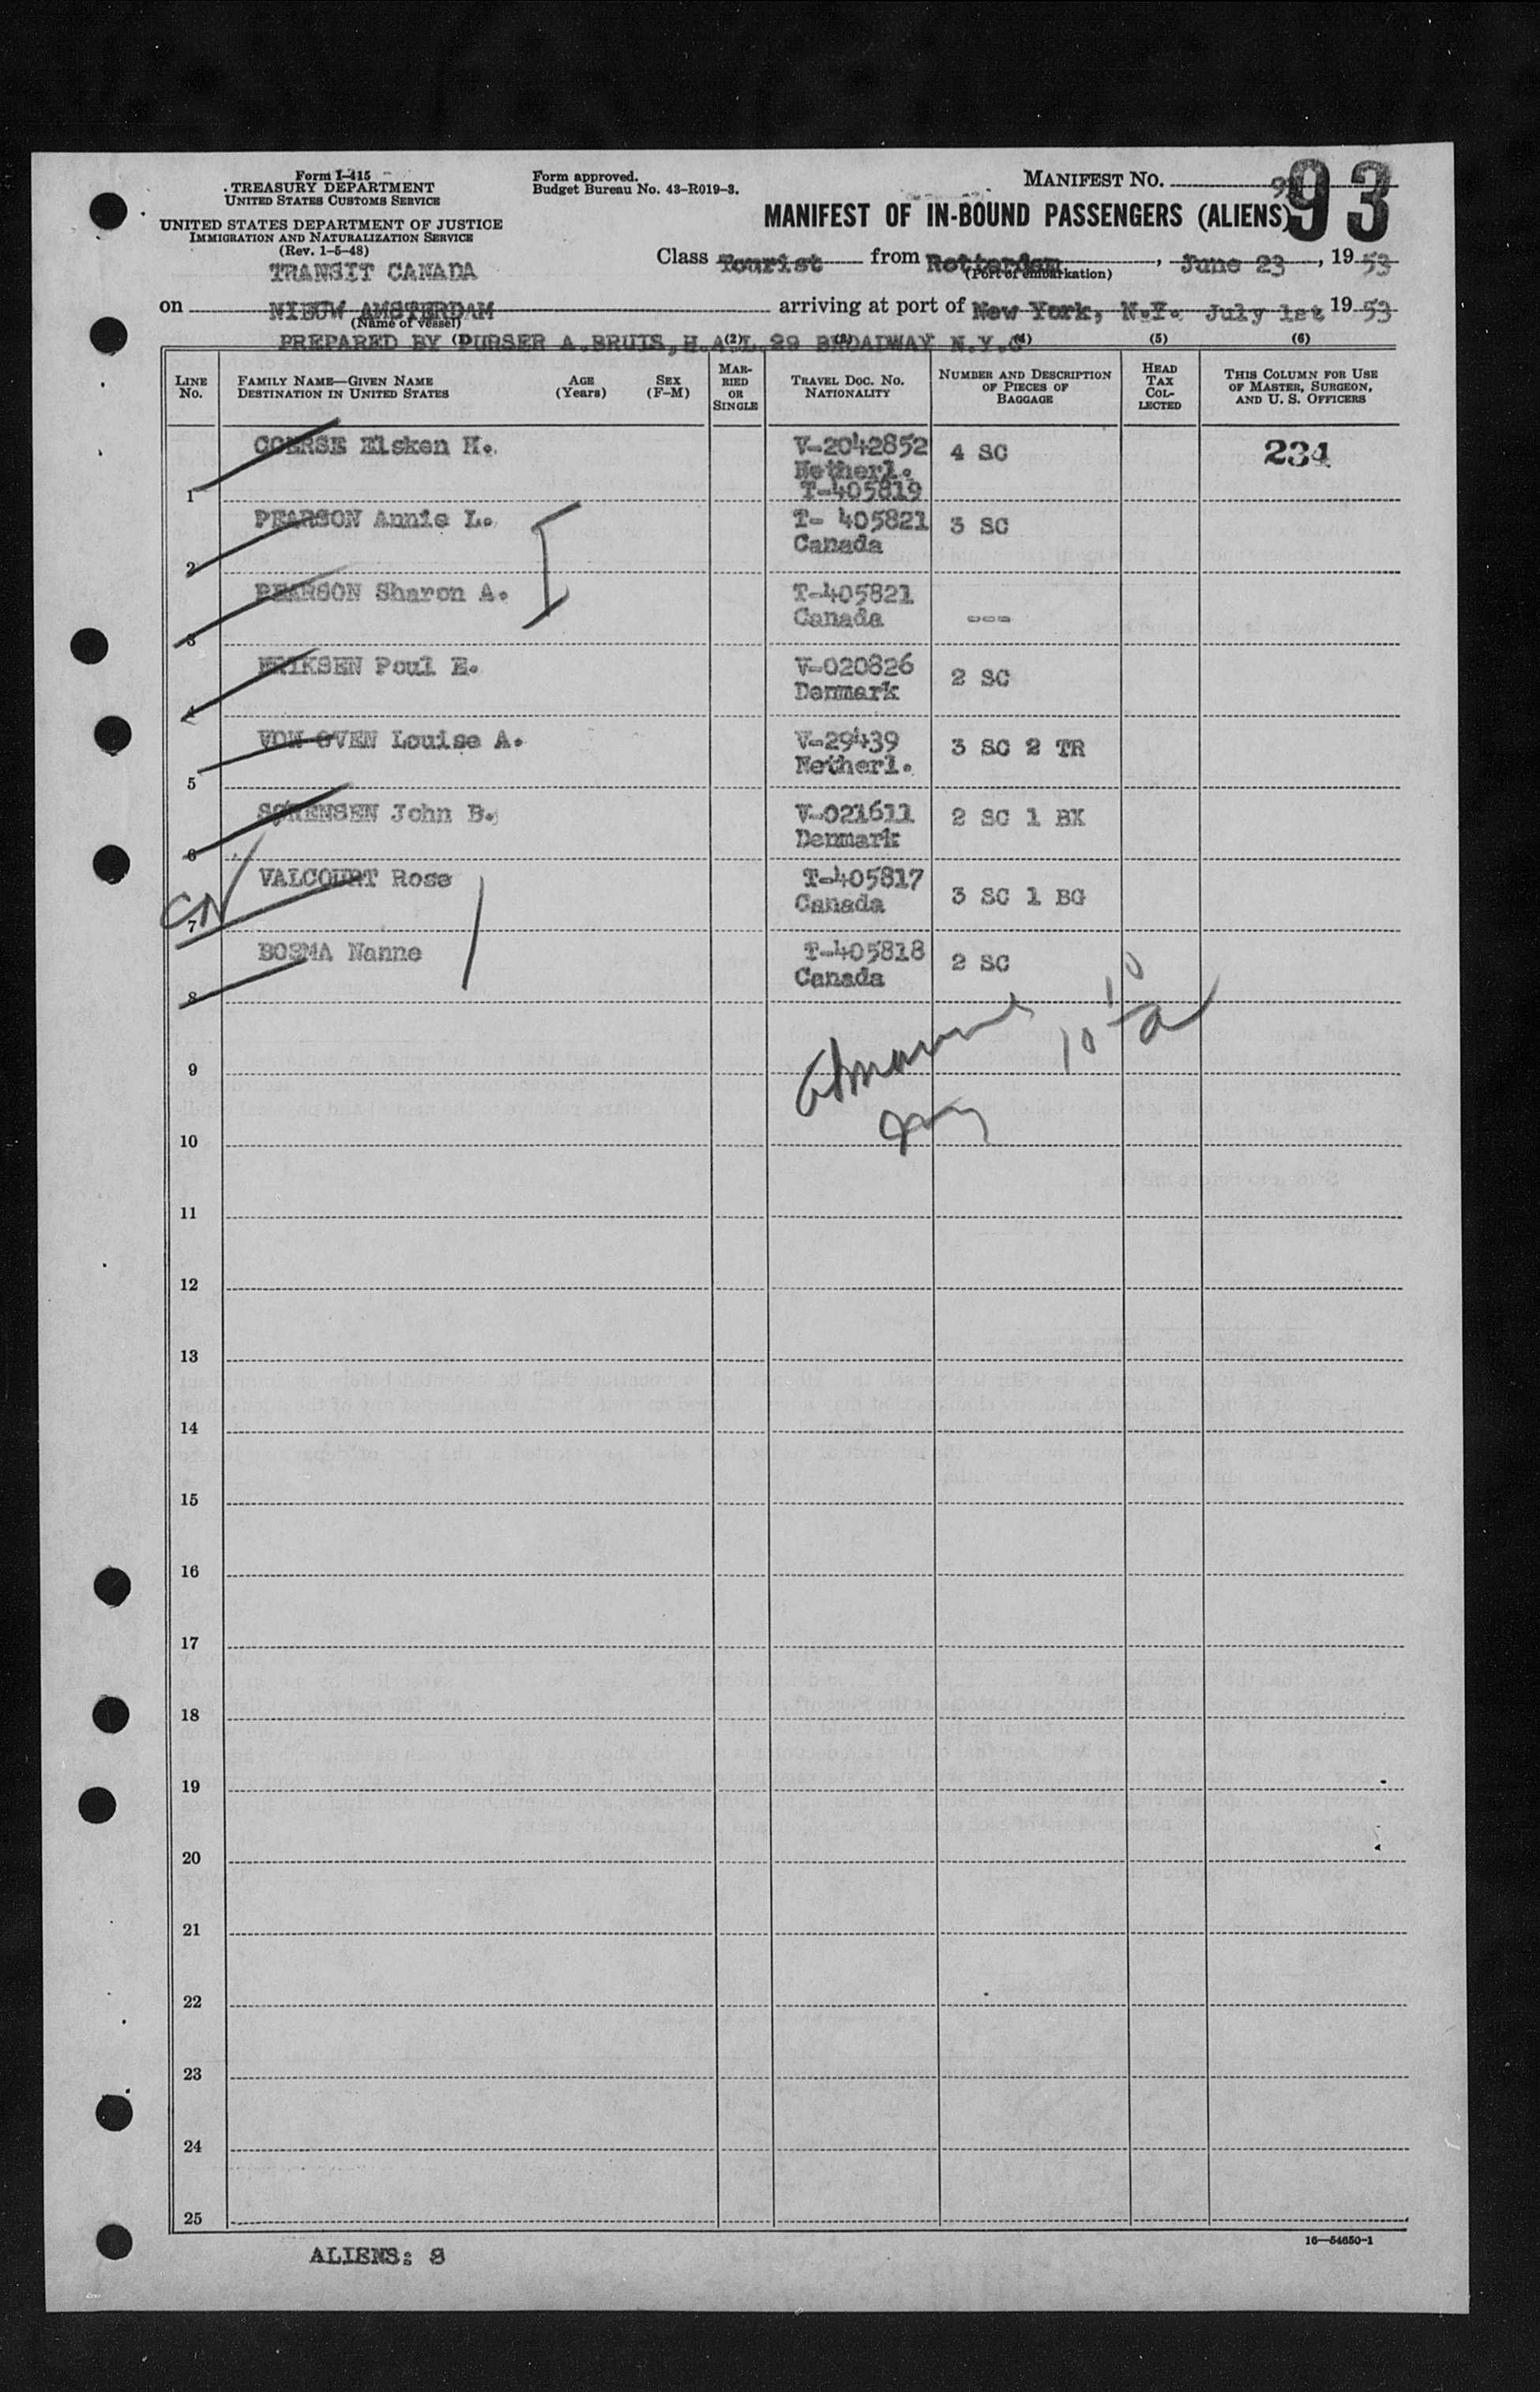 Form I-415
TREASURY DEPARTMENT
UNITED STATES CUSTOMS SERVICE
UNITED STATES DEPARTMENT OF JUSTICE
IMMIGRATION AND NATURALIZATION SERVICE
(Rev. 1-5-48)
Form approved.
Budget Bureau No. 43-R019-3.
MANIFEST NO.
93
MANIFEST OF IN-BOUND PASSENGERS (ALIENS)
TRANSIT CANADA
Class Tourist from Rotterdam, June 23, 1953
(Port of embarkation)
on NIEUW AMSTERDAM arriving at port of New York, N.Y. July 1st 1953
(Name of vessel)
PREPARED BY PURSER A.BRUIS, H.A.L. 29 BROADWAY N.Y.C
(1) (2) (3) (4) (5) (6)
LINE No. FAMILY NAME—GIVEN NAME DESTINATION IN UNITED STATES AGE (Years) SEX (F-M) MARRIED OR SINGLE TRAVEL DOC. NO. NATIONALITY NUMBER AND DESCRIPTION OF PIECES OF BAGGAGE HEAD TAX COLLECTED THIS COLUMN FOR USE OF MASTER, SURGEON, AND U. S. OFFICERS
1 COERSE Elsken H. V-2042852 4 SC 234
Netherl.
T-405819
2 PEARSON Annie L. T- 405821 3 SC
Canada
3 PEARSON Sharon A. T-405821 ---
Canada
4 ERIKSEN Poul E. V-020826 2 SC
Denmark
5 VON OVEN Louise A. V-29439 3 SC 2 TR
Netherl.
6 SØRENSEN John B. V-021611 2 SC 1 BX
Denmark
CN
7 VALCOURT Rose T-405817 3 SC 1 BG
Canada
8 BOSMA Nanne T-405818 2 SC
Canada
9
10
11
12
13
14
15
16
17
18
19
20
21
22
23
24
25
ALIENS: 8
16—54650-1